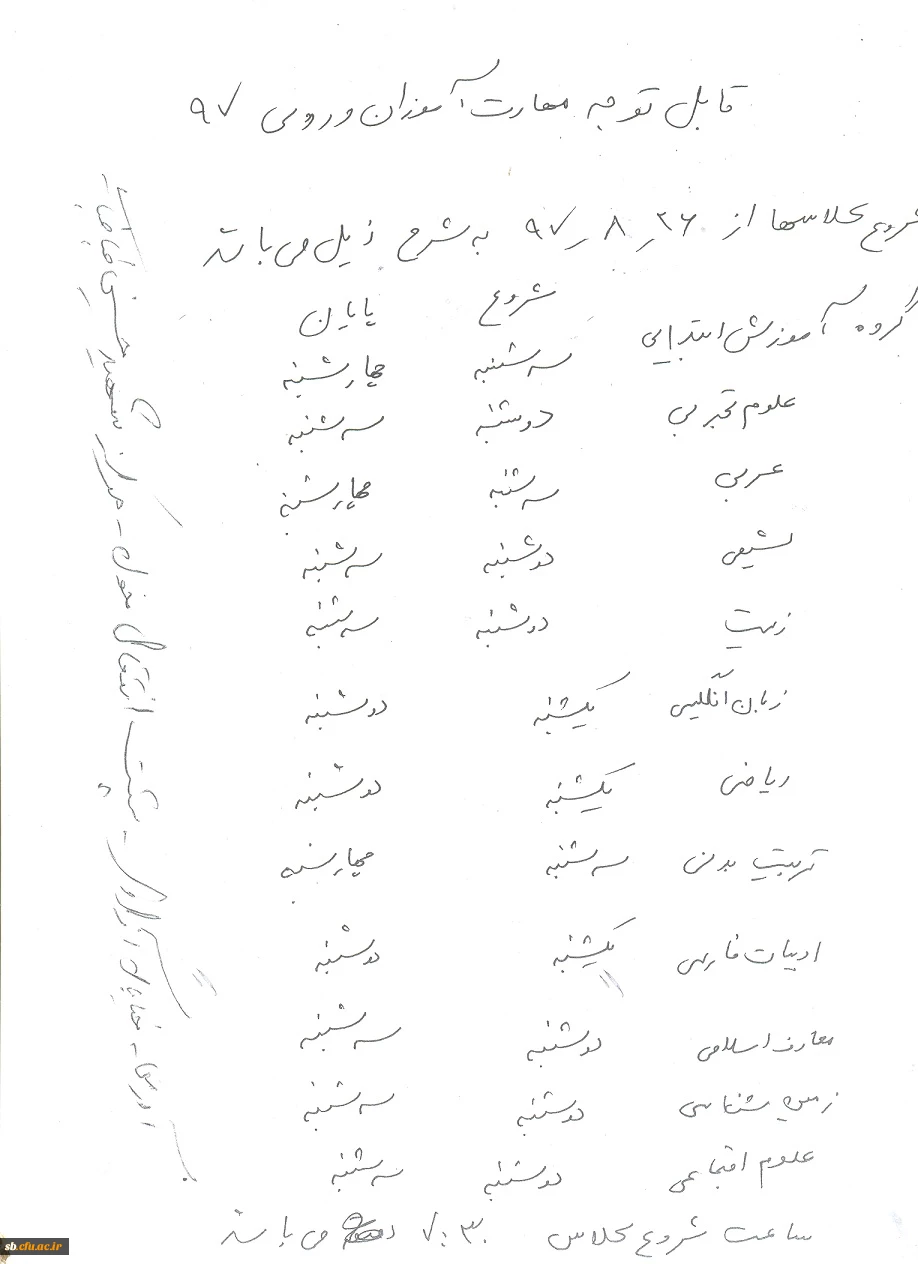 قابل توجه مهارت آموزان ورودی ۹۷
شروع کلاسها از ۲۶ر۸ر۹۷ به شرح ذیل می باشد
شروع پایان
گروه آموزش ابتدایی سه شنبه چهارشنبه
علوم تجربی دوشنبه سه شنبه
عربی سه شنبه چهارشنبه
شیمی دوشنبه سه شنبه
زیست دوشنبه سه شنبه
زبان انگلیسی یکشنبه دوشنبه
ریاضی یکشنبه دوشنبه
تربیت بدنی سه شنبه چهارشنبه
ادبیات فارسی یکشنبه دوشنبه
معارف اسلامی دوشنبه سه شنبه
زمین شناسی دوشنبه سه شنبه
علوم اجتماعی دوشنبه سه شنبه
ساعت شروع کلاس ۷:۳۰ می باشد
آدرس - خیابان - پشت انتقال خون - مرکز شهید
sb.cfu.ac.ir